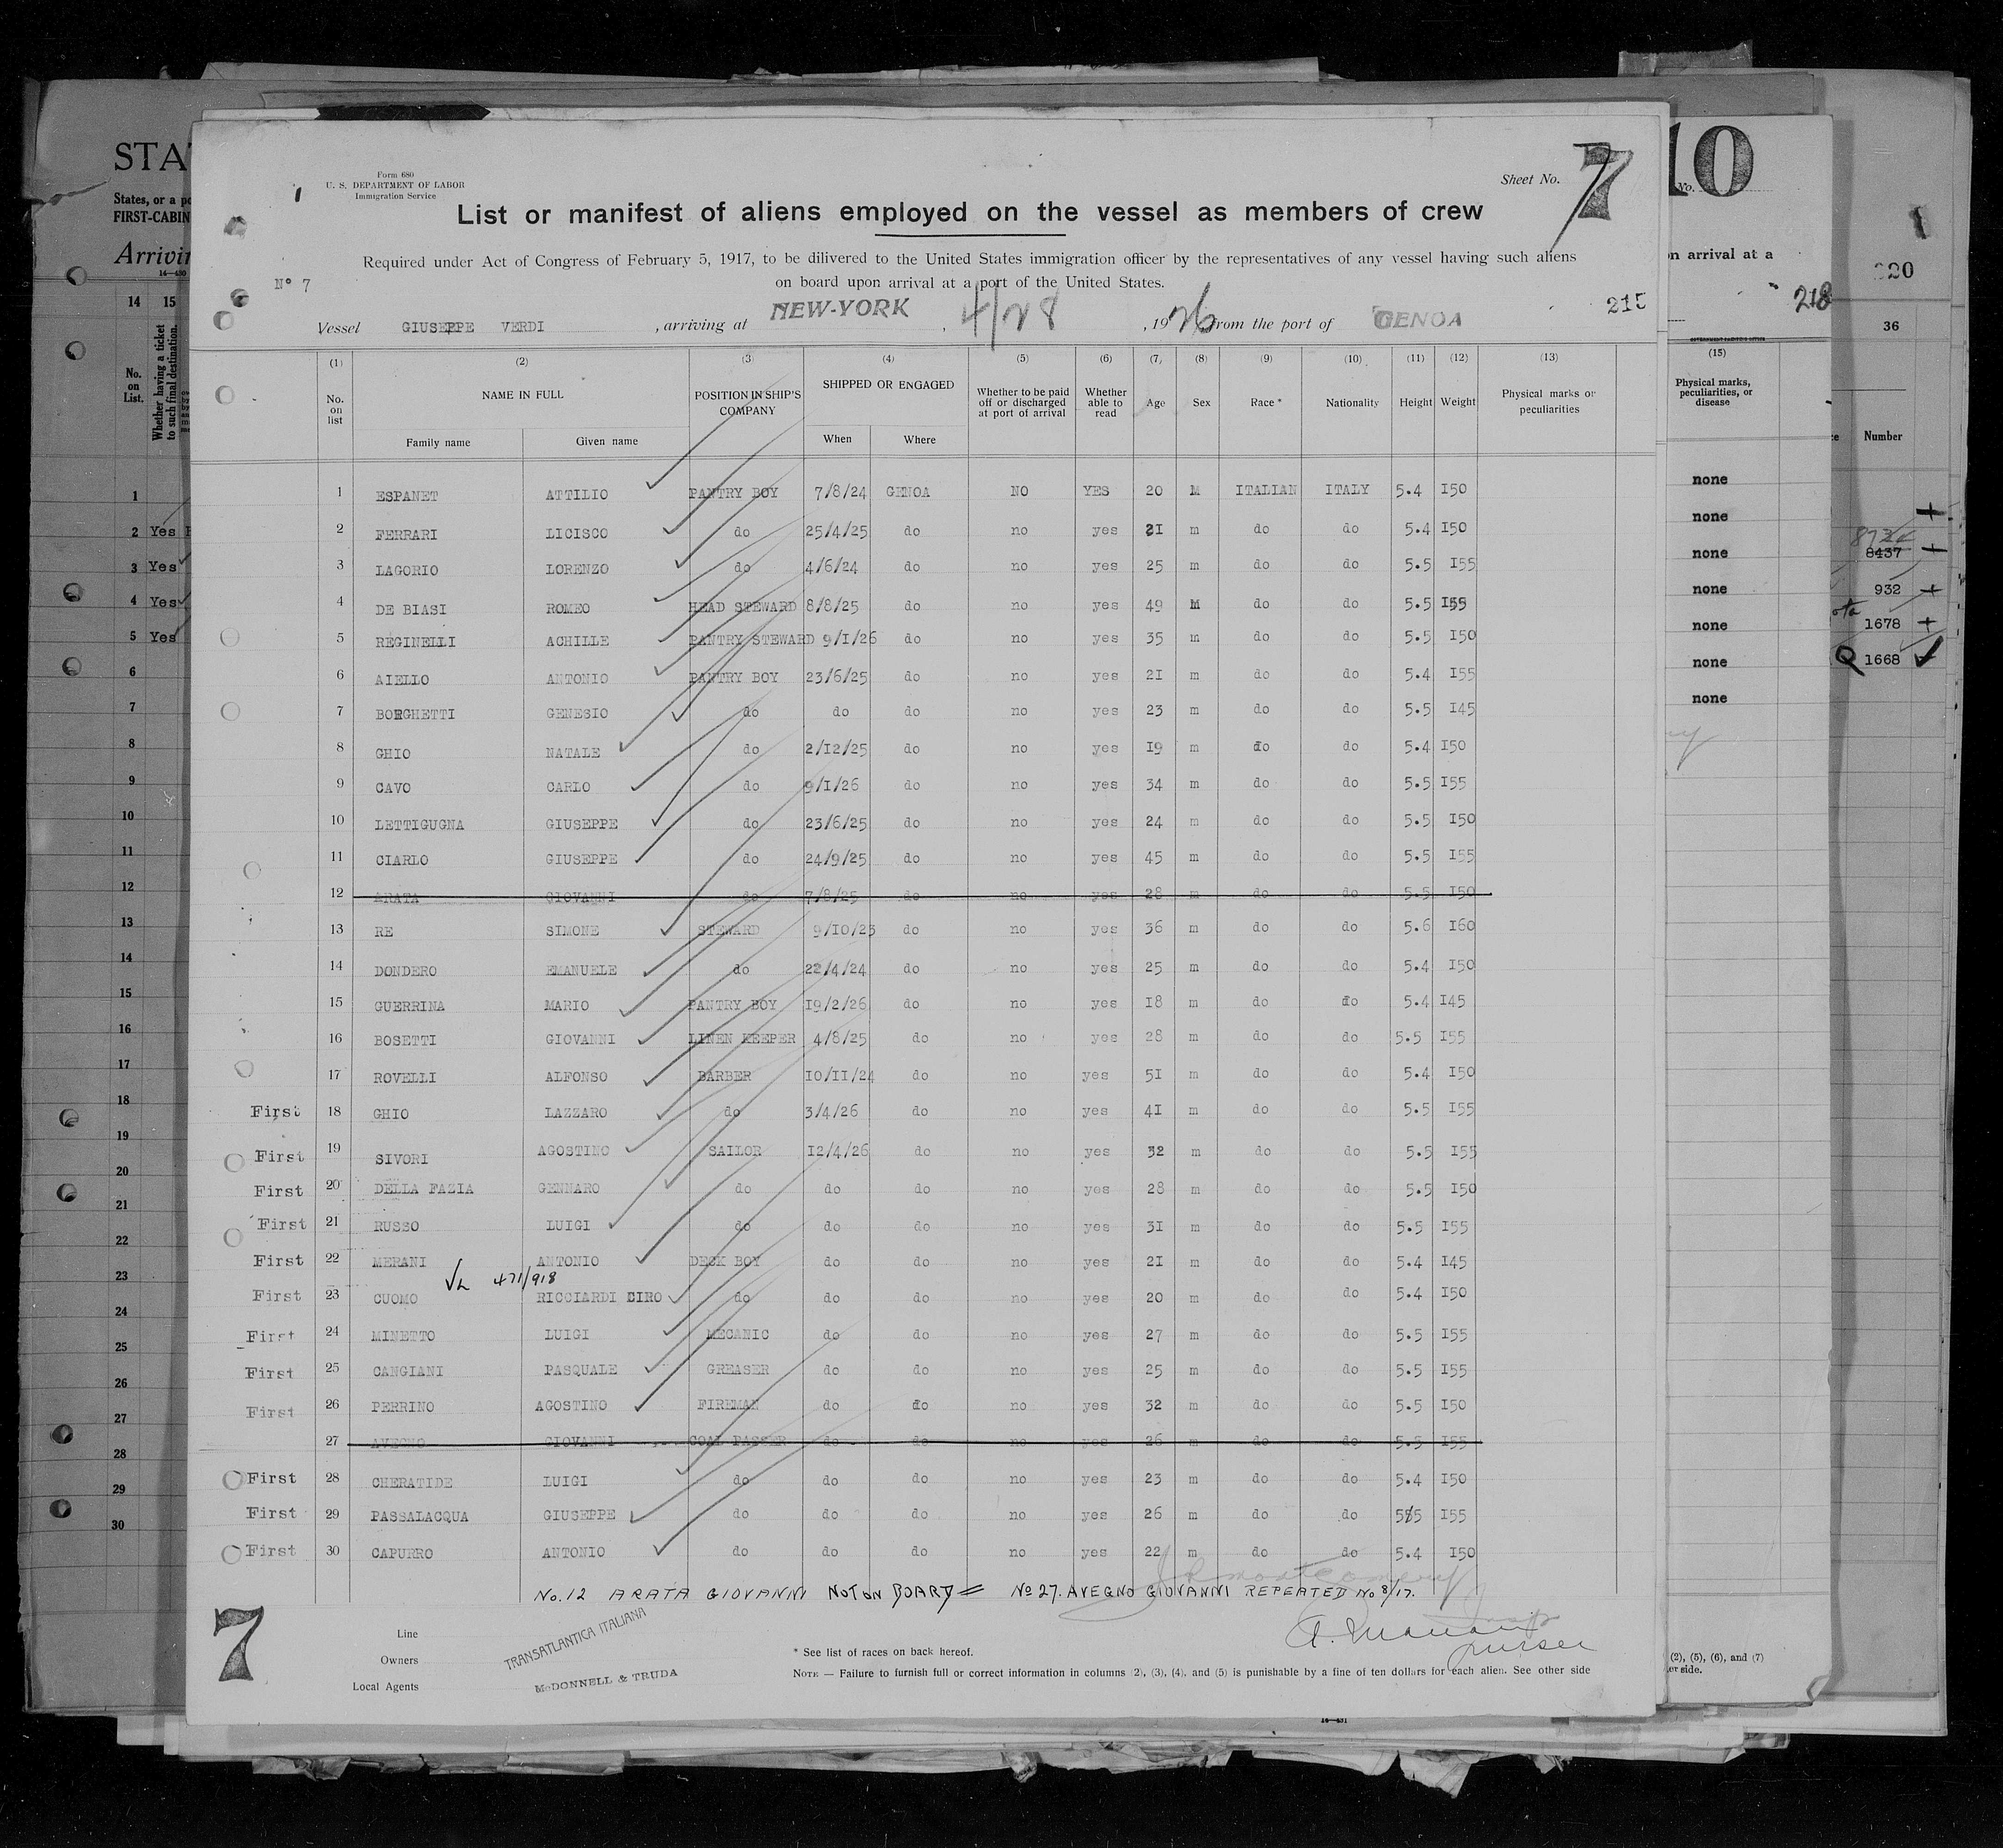 Form 680
U. S. DEPARTMENT OF LABOR
Immigration Service
Sheet No. 7
List or manifest of aliens employed on the vessel as members of crew
Required under Act of Congress of February 5, 1917, to be dilivered to the United States immigration officer by the representatives of any vessel having such aliens
on board upon arrival at a port of the United States.
N° 7
Vessel GIUSEPPE VERDI , arriving at NEW-YORK , 4/28 , 1926 from the port of GENOA
(1) (2) (3) (4) (5) (6) (7) (8) (9) (10) (11) (12) (13)
No. on list NAME IN FULL Family name Given name POSITION IN SHIP'S COMPANY SHIPPED OR ENGAGED When Where Whether to be paid off or discharged at port of arrival Whether able to read Age Sex Race * Nationality Height Weight Physical marks or peculiarities
1 ESPANET ATTILIO PANTRY BOY 7/8/24 GENOA NO YES 20 M ITALIAN ITALY 5.4 I50
2 FERRARI LICISCO do 25/4/25 do no yes 2I m do do 5.4 I50
3 LAGORIO LORENZO do 4/6/24 do no yes 25 m do do 5.5 I55
4 DE BIASI ROMEO HEAD STEWARD 8/8/25 do no yes 49 M do do 5.5 I55
5 REGINELLI ACHILLE PANTRY STEWARD 9/I/26 do no yes 35 m do do 5.5 I50
6 AIELLO ANTONIO PANTRY BOY 23/6/25 do no yes 2I m do do 5.4 I55
7 BORGHETTI GENESIO do do do no yes 23 m do do 5.5 I45
8 GHIO NATALE do 2/I2/25 do no yes I9 m do do 5.4 I50
9 CAVO CARLO do 9/I/26 do no yes 34 m do do 5.5 I55
10 LETTIGUGNA GIUSEPPE do 23/6/25 do no yes 24 m do do 5.5 I50
11 CIARLO GIUSEPPE do 24/9/25 do no yes 45 m do do 5.5 I55
12 ARATA GIOVANNI do 7/8/25 do no yes 28 m do do 5.5 I50
13 RE SIMONE STEWARD 9/I0/23 do no yes 36 m do do 5.6 I60
14 DONDERO EMANUELE do 22/4/24 do no yes 25 m do do 5.4 I50
15 GUERRINA MARIO PANTRY BOY I9/2/26 do no yes I8 m do do 5.4 I45
16 BOSETTI GIOVANNI LINEN KEEPER 4/8/25 do no yes 28 m do do 5.5 I55
17 ROVELLI ALFONSO BARBER I0/II/24 do no yes 5I m do do 5.4 I50
First 18 GHIO LAZZARO do 3/4/26 do no yes 4I m do do 5.5 I55
First 19 SIVORI AGOSTINO SAILOR I2/4/26 do no yes 32 m do do 5.5 I55
First 20 DELLA FAZIA GENNARO do do do no yes 28 m do do 5.5 I50
First 21 RUSSO LUIGI do do do no yes 3I m do do 5.5 I55
First 22 MERANI ANTONIO DECK BOY do do no yes 2I m do do 5.4 I45
471/918
First 23 CUOMO RICCIARDI CIRO do do do no yes 20 m do do 5.4 I50
First 24 MINETTO LUIGI MECANIC do do no yes 27 m do do 5.5 I55
First 25 CANGIANI PASQUALE GREASER do do no yes 25 m do do 5.5 I55
First 26 PERRINO AGOSTINO FIREMAN do do no yes 32 m do do 5.5 I50
27 AVEGNO GIOVANNI COAL PASSER do do no yes 26 m do do 5.5 I55
First 28 CHERATIDE LUIGI do do do no yes 23 m do do 5.4 I50
First 29 PASSALACQUA GIUSEPPE do do do no yes 26 m do do 5.5 I55
First 30 CAPURRO ANTONIO do do do no yes 22 m do do 5.4 I50
No. 12 ARATA GIOVANNI NOT ON BOARD = No 27. AVEGNO GIOVANNI REPEATED No 8/17.
Line
Owners TRANSATLANTICA ITALIANA
Local Agents McDONNELL & TRUDA
7
purser
* See list of races on back hereof.
NOTE — Failure to furnish full or correct information in columns (2), (3), (4), and (5) is punishable by a fine of ten dollars for each alien. See other side
STA
States, or a po
FIRST-CABIN
Arrivin
14 15
No. on List.
Whether having a ticket to such final destination.
1
2 Yes
3 Yes
4 Yes
5 Yes
6
7
8
9
10
11
12
13
14
15
16
17
18
19
20
21
22
23
24
25
26
27
28
29
30
No. 10
on arrival at a
218
(15)
Physical marks, peculiarities, or disease
none
none
none
none
none
none
none
(2), (5), (6), and (7)
er side.
220
36
Number
8437
932
1678
1668